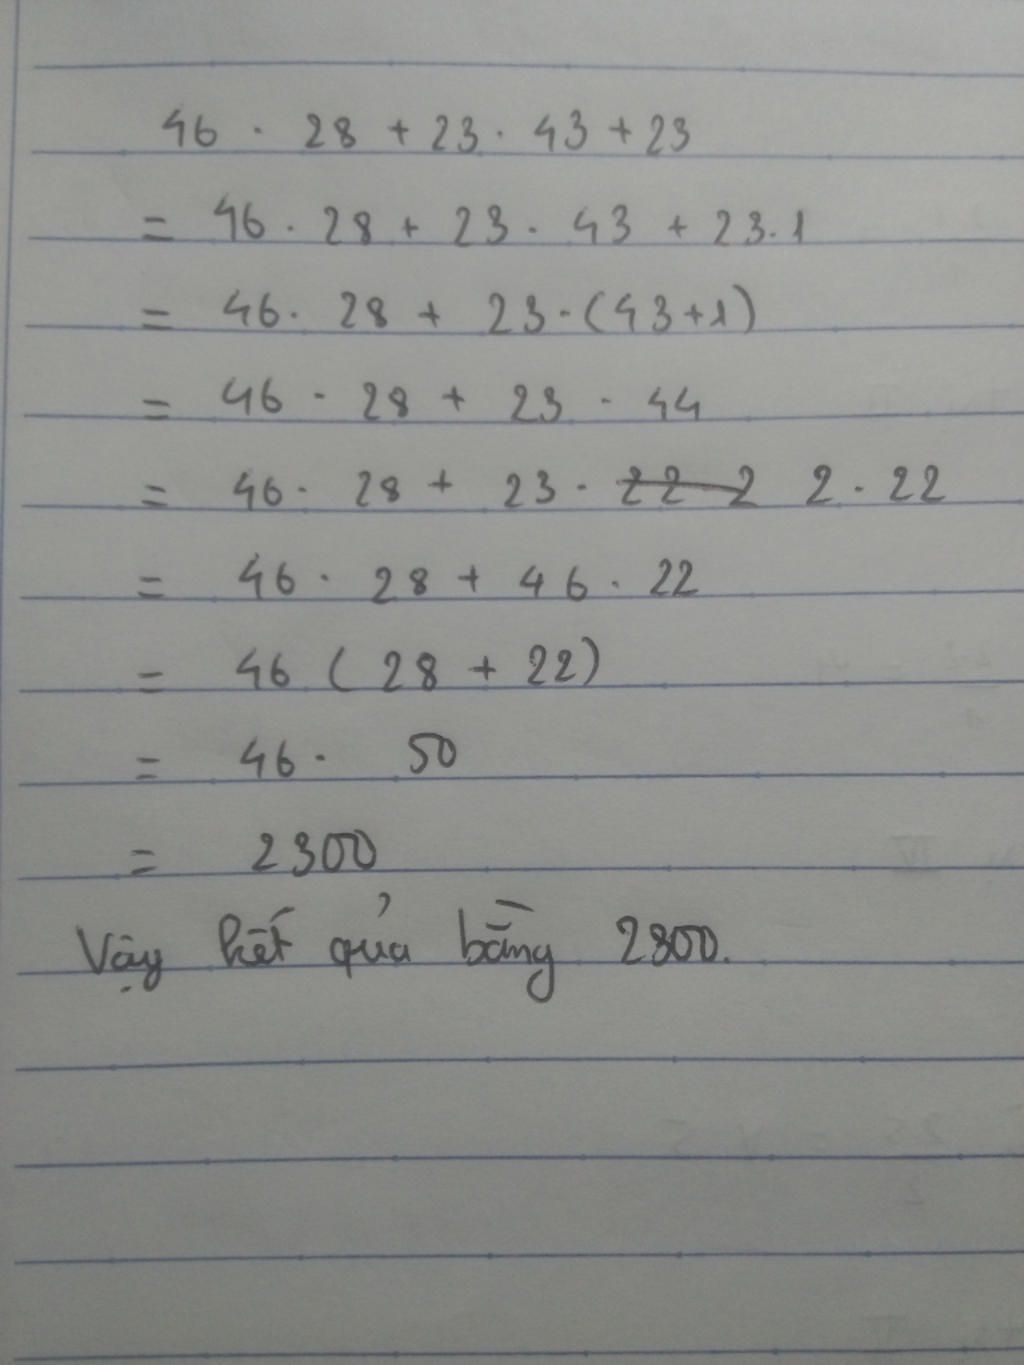 46 . 28 + 23 . 43 + 23
= 46 . 28 + 23 . 43 + 23.1
= 46 . 28 + 23 . (43+1)
= 46 . 28 + 23 . 44
= 46 . 28 + 23 . 22 2 2 . 22
= 46 . 28 + 46 . 22
= 46 ( 28 + 22)
= 46 . 50
= 2300
Vậy kết quả bằng 2300.